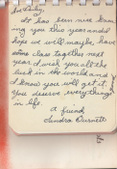 It has been nice know-
ing you this year and I
hope we will maybe have
some class together next
year I wish you all the
luck in the world and
I know you will get it.
You deserve everything
in life.
A friend
Sandra Burnett